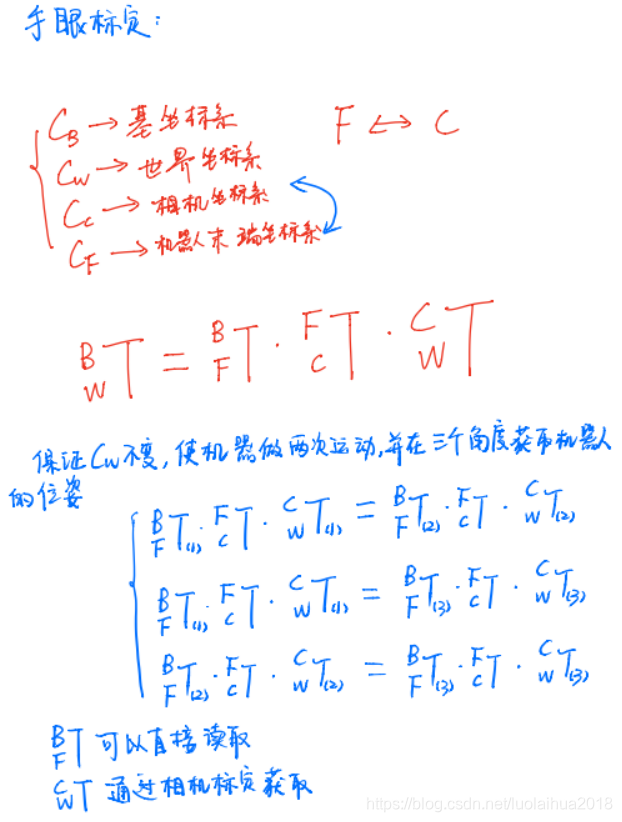 手眼标定:
C_B → 基坐标系
F ↔ C
C_W → 世界坐标系
C_C → 相机坐标系
C_F → 机器人末端坐标系
^B_W T = ^B_F T · ^F_C T · ^C_W T
保证C_W不变, 使机器做两次运动, 并在三个角度获取机器人
的位姿
^B_F T_(1) · ^F_C T · ^C_W T_(1) = ^B_F T_(2) · ^F_C T · ^C_W T_(2)
^B_F T_(1) · ^F_C T · ^C_W T_(1) = ^B_F T_(3) · ^F_C T · ^C_W T_(3)
^B_F T_(2) · ^F_C T · ^C_W T_(2) = ^B_F T_(3) · ^F_C T · ^C_W T_(3)
^B_F T 可以直接读取
^C_W T 通过相机标定获取
https://blog.csdn.net/luolaihua2018